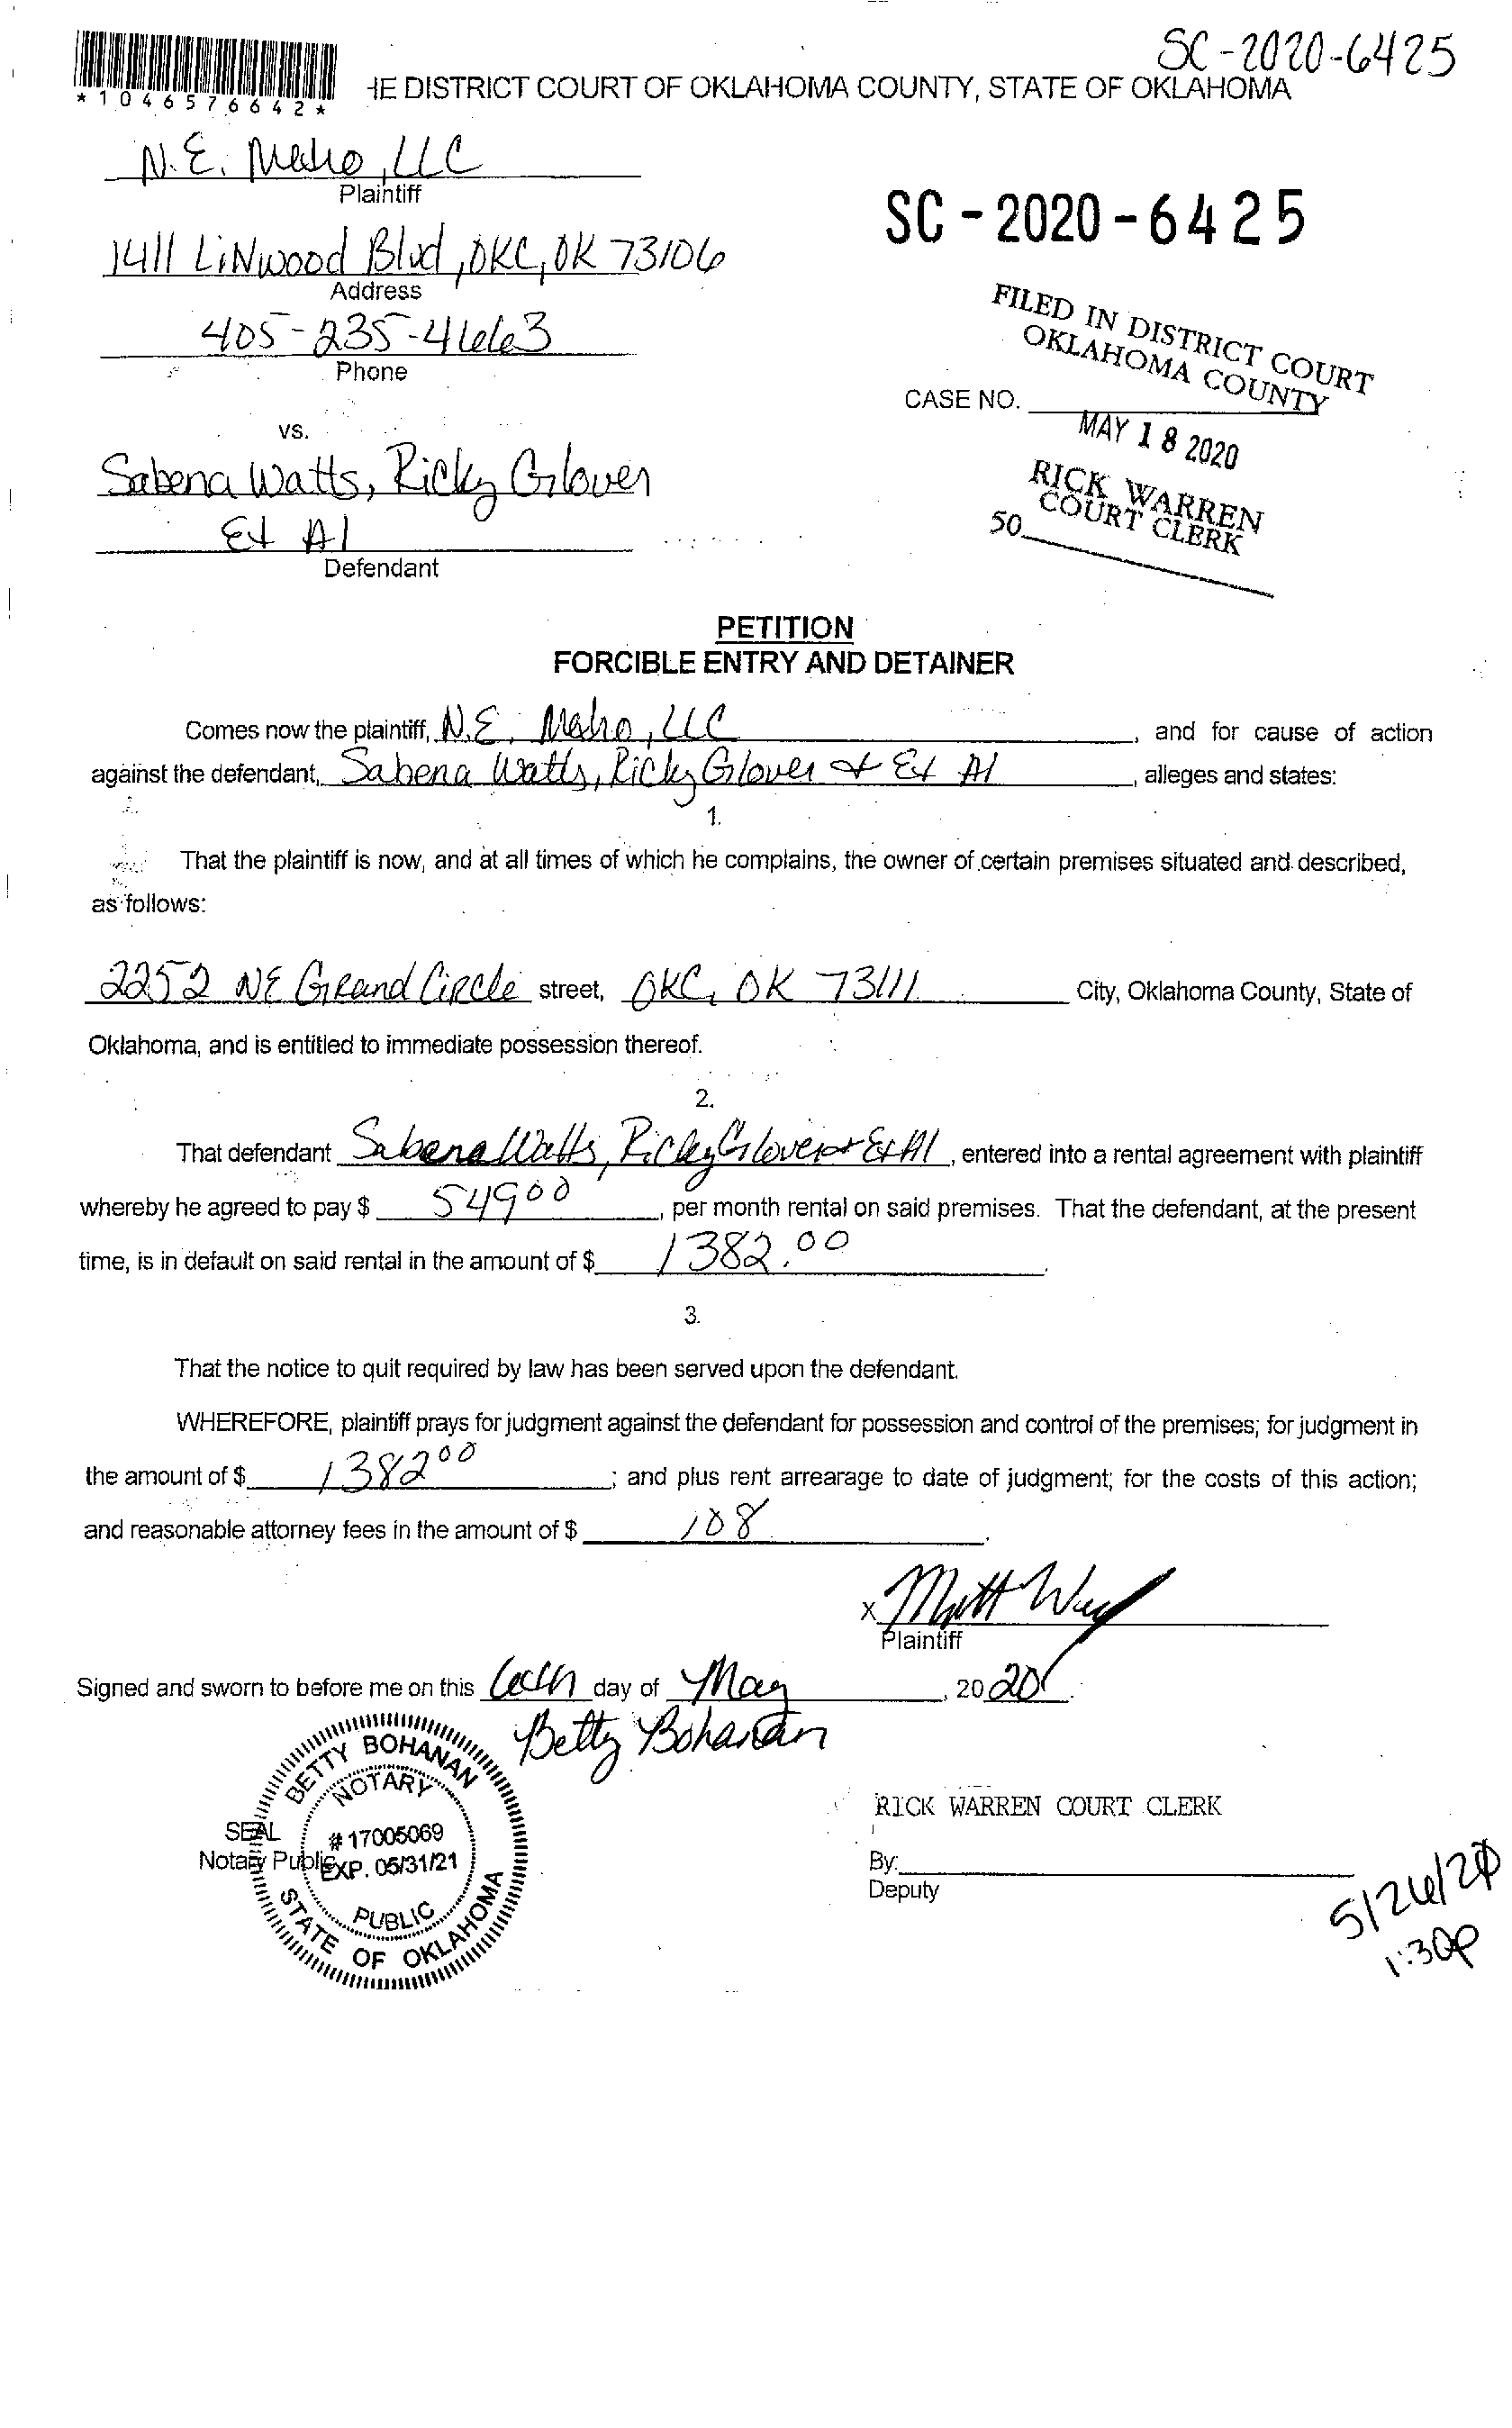 SC-2020-6425
*1046576642*
HE DISTRICT COURT OF OKLAHOMA COUNTY, STATE OF OKLAHOMA
N.E. Metro, LLC
Plaintiff
SC-2020-6425
1411 LiNwood Blvd, OKC, OK 73106
Address
FILED IN DISTRICT COURT
OKLAHOMA COUNTY
405-235-4663
Phone
CASE NO.
MAY 18 2020
vs.
Sabena Watts, Ricky Glover
RICK WARREN
COURT CLERK
50
Et Al
Defendant
PETITION
FORCIBLE ENTRY AND DETAINER
Comes now the plaintiff, N.E. Metro, LLC, and for cause of action
against the defendant, Sabena Watts, Ricky Glover & Et Al, alleges and states:
1.
That the plaintiff is now, and at all times of which he complains, the owner of certain premises situated and described,
as follows:
2252 NE Grand Circle street, OKC, OK 73111 City, Oklahoma County, State of
Oklahoma, and is entitled to immediate possession thereof.
2.
That defendant Sabena Watts, Ricky Glover & Et Al, entered into a rental agreement with plaintiff
whereby he agreed to pay $ 549 00, per month rental on said premises. That the defendant, at the present
time, is in default on said rental in the amount of $ 1382.00.
3.
That the notice to quit required by law has been served upon the defendant.
WHEREFORE, plaintiff prays for judgment against the defendant for possession and control of the premises; for judgment in
the amount of $ 1382 00; and plus rent arrearage to date of judgment; for the costs of this action;
and reasonable attorney fees in the amount of $ 108.
x Matt
Plaintiff
Signed and sworn to before me on this day of May, 2020.
Betty Bohanan
BETTY BOHANAN
NOTARY
SEAL
# 17005069
Notary Public
EXP. 05/31/21
PUBLIC
STATE OF OKLAHOMA
RICK WARREN COURT CLERK
By:
Deputy
5/26/20
1:30p